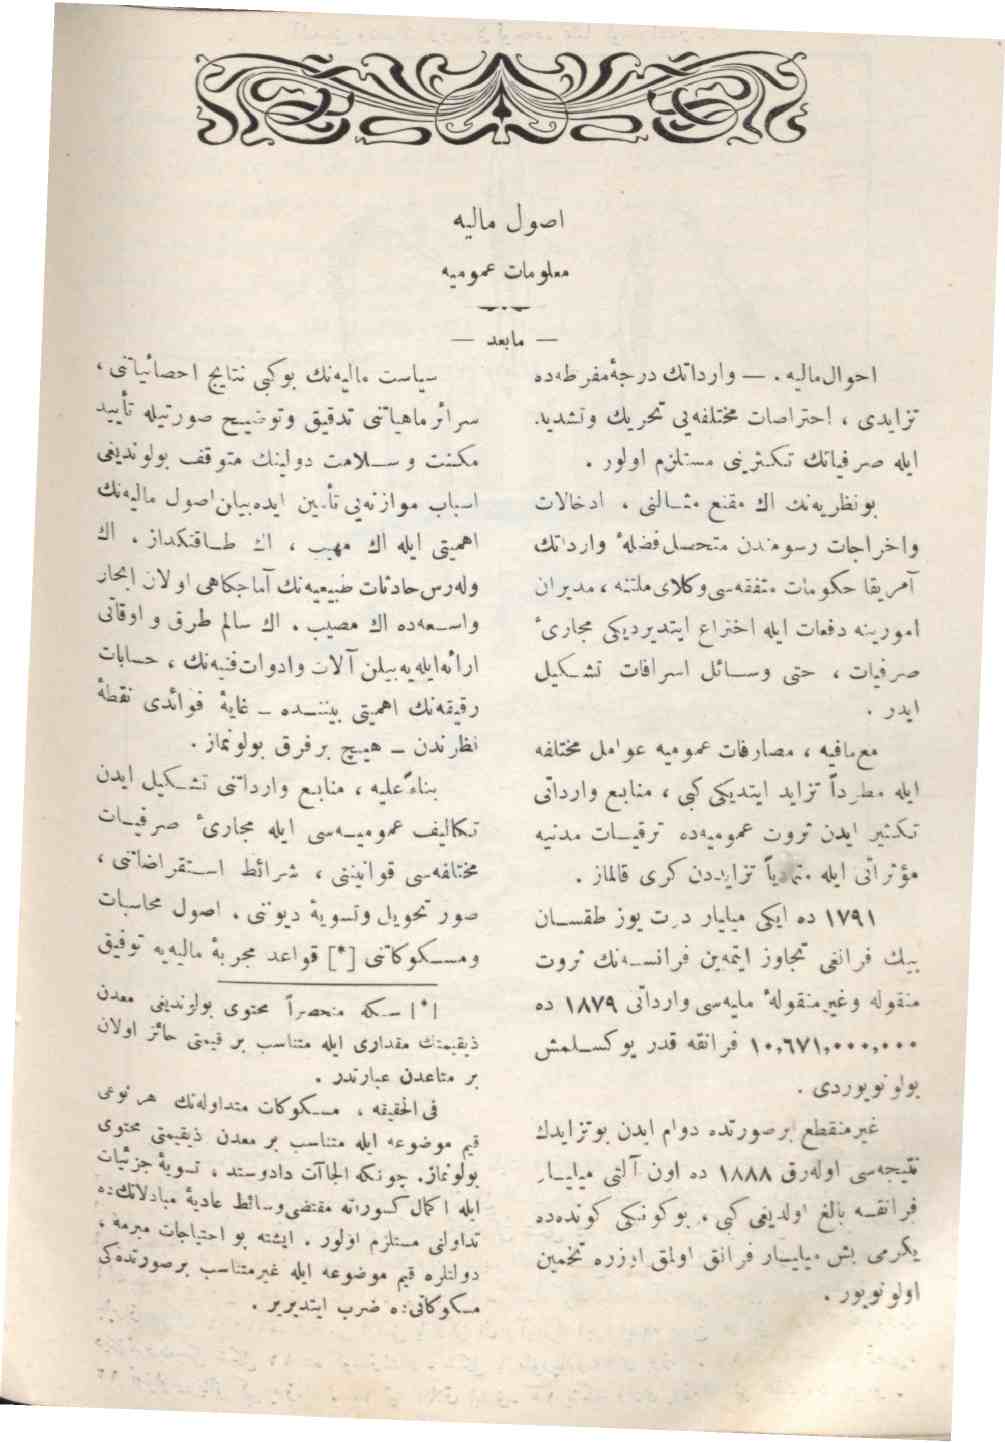 اصول ماليه
معلومات عموميه
— مابعد —
احوال ماليه . — وارداتك درجهٔ مفرطه‌ده
تزايدى ، احتراصات مختلفه‌يى تحريك وتشديد
ايله صرفياتك تكثرينى مستلزم اولور .
بونظريه‌نك اك مقنع مثالنى ، ادخالات
واخراجات رسومندن متحصل فضلهٔ وارداتك
آمريقا حكومات متفقه‌سى وكلاى ملتنه ، مديران
امورينه دفعات ايله اختراع ايتديرديكى مجارىٔ
صرفيات ، حتى وسائل اسرافات تشكيل
ايدر .
مع‌مافيه ، مصارفات عموميه عوامل مختلفه
ايله مطرداً تزايد ايتديكى كبى ، منابع وارداتى
تكثير ايدن ثروت عموميه‌ده ترقيات مدنيه
مؤثراتى ايله متمادياً تزايددن كرى قالماز .
١٧٩١ ده ايكى ميليار درت يوز طقسان
بيك فرانغى تجاوز ايتمه‌ين فرانسه‌نك ثروت
منقوله وغيرمنقولهٔ مليه‌سى وارداتى ١٨٧٩ ده
١٠,٦٧١,٠٠٠,٠٠٠ فرانقه قدر يوكسلمش
بولونويوردى .
غيرمنقطع برصورتده دوام ايدن بوتزايدك
نتيجه‌سى اوله‌رق ١٨٨٨ ده اون آلتى ميليار
فرانقه بالغ اولديغى كبى ، بوكونكى كونده‌ده
يكرمى بش ميليار فرانق اولمق اوزره تخمين
اولونويور .
سياست ماليه‌نك بوكبى نتايج احصائياتنى ،
سرائر ماهياتنى تدقيق وتوضيح صورتيله تأييد
مكنت وسلامت دولينك متوقف بولونديغى
اسباب موازنه‌يى تأمين ايده‌بيلن اصول ماليه‌نك
اهميتى ايله اك مهيب ، اك طاقتكداز . اك
وله‌رس حادثات طبيعيه‌نك آماجكاهى اولان ابحار
واسعه‌ده اك مصيب . اك سالم طرق و اوقاتى
ارائه ايله‌يه‌بيلن آلات وادوات فنيه‌نك ، حسابات
رقيقه‌نك اهميتى بيننده — غايهٔ فوائدى نقطهٔ
نظرندن — هيچ بر فرق بولونماز .
بناءً عليه ، منابع وارداتنى تشكيل ايدن
تكاليف عموميه‌سى ايله مجارىٔ صرفيات
مختلفه‌سى قوانيننى ، شرائط استقراضاتنى ،
صور تحويل وتسويهٔ ديوننى . اصول محاسبات
ومسكوكاتنى [*] قواعد مجربهٔ ماليه‌يه توفيق
[*] سكه منحصراً محتوى بولونديغى معدن
ذيقيمتك مقدارى ايله متناسب بر قيمتى حائز اولان
بر متاعدن عبارتدر .
فى الحقيقه ، مسكوكات متداوله‌نك هر نوعى
قيم موضوعه ايله متناسب بر معدن ذيقيمتى محتوى
بولونماز . چونكه الجاآت دادوستد ، تسويهٔ جزئيات
ايله اكمال كسوراته مقتضى وسائط عاديهٔ مبادلاتك‌ده
تداولنى مستلزم اولور . ايشته بو احتياجات مبرمه ،
دولتلره قيم موضوعه ايله غيرمتناسب برصورتده‌كى
مسكوكاتى‌ده ضرب ايتديرير .